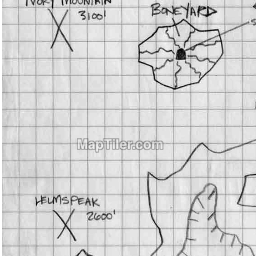 IVORY MOUNTAIN
3100'
BONEYARD
MapTiler.com
HELMSPEAK
2600'